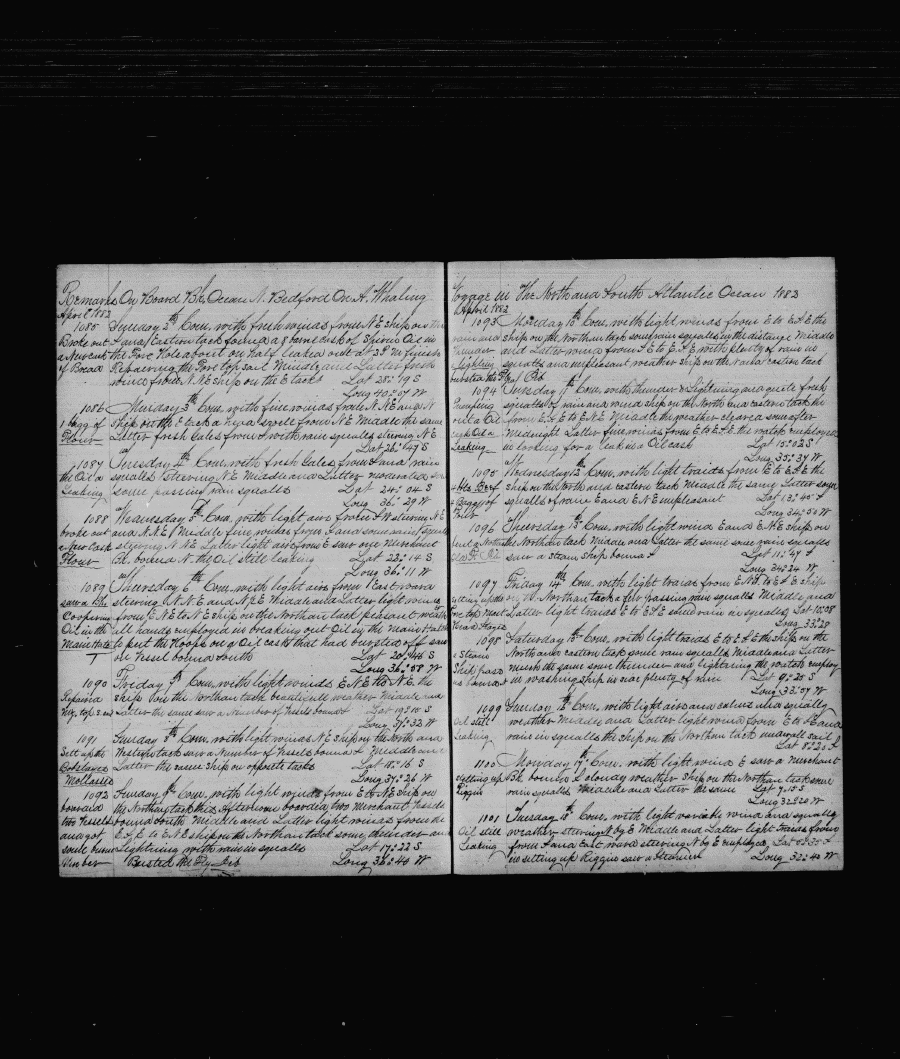 Remarks On Board Bk. Ocean N. Bedford On A. Whaling
April 1882
1085 Sunday 2th Com. with fresh winds from N E ship on the
Broke out Eastern tack found a 8 barrel cask of Sperm Oil in
a New cask the Fore Hole about on half leaked out at 3 P.M. finish
of Bread Repairing the Fore top sail Middle and Latter fresh
winds from N. N E ship on the E tack Lat 28:19 S
Long 40:07 W
1086 Munday 3th Com. with fine winds from N. N E and N
1 kegg of ship on the E tack a heavy swell from N E Middle the same
Flour Latter fresh Gales from with rain squalls steering N E
Lat 26:49 S
1087 Tuesday 4th Com. with fresh Gales from and rain
the Oil a squalls Steering N E Middle and Latter moderated
Leaking some passing rain squalls Lat 24:04 S
Long 36:29 W
1088 Wednesday 5th Com. with light airs from S W steering N E
broke out and N. N E Middle fine winds from and some rain squalls
a New cask steering N. N E Latter light airs from E saw one Merchant
Flour Bk. bound N. the Oil still leaking Lat 22:14 S
Long 36:11 W
1089 Thursday 6th Com. with light airs from East ward
saw a Bk steering N. N E and N E Middle and Latter light winds
Coopering from E N E to N E ship on the Northan tack pleasant weather
Oil in the all hands employed in breaking out Oil in the Main Hatch
Main Hatch to put the Hoops on 9 Oil casks that had bursted off saw
on Vessel bound South Lat 20:46 S
Long 36:58 W
1090 Friday 7th Com. with light winds E N E to N. E. the
Repaired ship on the Northan tack beautifull weather Middle and
Latter the same saw a Number of Vessels bound S Lat 19:15 S
Long 37:33 W
1091 Saturday 8th Com. with light winds N E ship on the North and
Sett up the Western tack saw a Number of Vessels bound S Middle and
Bobstayes Latter the same ship on opposite tacks Lat 18:16 S
Mollasses Long 37:26 W
1092 Sunday 9th Com. with light winds from E to N E ship on
boarded the Northan tack this Afternoon boarded two Merchant Vessels
two Vessels bound South Middle and Latter light winds from the
and got E. S. E to E N E ship on the Northan tack some thunder and
some Lightning with rain in squalls Lat 17:22 S
Number Busted the Fly Jib Long 36:40 W
Voyage in The North and South Atlantic Ocean 1882
April 1882
1093 Monday 10th Com. with light winds from E to E S E the
rain and ship on the Northan tack some rain squalls in the distance Middle
thunder and Latter wind from S E to E. S. E with plenty of rain in
lighting squalls and unpleasant weather ship on the N and eastern tack
bursted the Flying Jib
1094 Tuesday 11th Com. with thunder & lightning and quite fresh
Pumping squalls of rain and wind ship on the North and eastern tack the
out a Oil from E. S E to E N E Middle the weather cleared some after
cask Oil a Midnight Latter fine winds from E to E. S E the watch employed
Leaking in looking for a leak in a Oil cask Lat 15:02 S
Long 35:37 W
1095 Wednesday 12th Com. with light traids from E to E. S E the
4 bbls Beef ship on the North and eastern tack Middle the same Latter some
4 Baggs of squalls of rain E and E. N E unpleasant Lat 13:45 S
Long 34:50 W
1096 Thersday 13th Com. with light wind E and E. N. E ship on
the Northan tack Middle and Latter the same some rain squalls
saw a steam ship bound S Lat 11:47 S
Long 34:24 W
1097 Friday 14th Com. with light traids from E N E to E S E ship
setting up the on the Northan tack a few passing rain squalls Middle and
Fore top Mast Latter light traids E to E. S E some rain in squalls Lat 10:38
Head Stayes Long 33:28
1098 Saturday 15th Com. with light traids E to E. S E the ship on the
a Steam North and eastern tack some rain squalls Middle and Latter
Ship pass much the same some thunder and lightning the watch employ
us bound S in washing ship in side plenty of rain Lat 9:25 S
Long 33:07 W
1099 Sunday 16th Com. with light airs and calms and squally
Oil still weather Middle and Latter light wind from E to S and
Leaking rain in squalls the ship on the Northan tack made all sail
Lat 8:23 S
1100 Monday 17th Com. with light winds E saw a merchant
setting up Bk bound S cloudy weather Ship on the Northan tack some
Riggin rain squalls Middle and Latter the same Lat 7:15 S
Long 32:20 W
1101 Tuesday 18th Com. with light variable wind and squally
Oil still weather steering N by E Middle and Latter light traids from
Leaking from S and East ward steering N by E employed
in setting up Riggin saw a Steamer Long 32:40 W